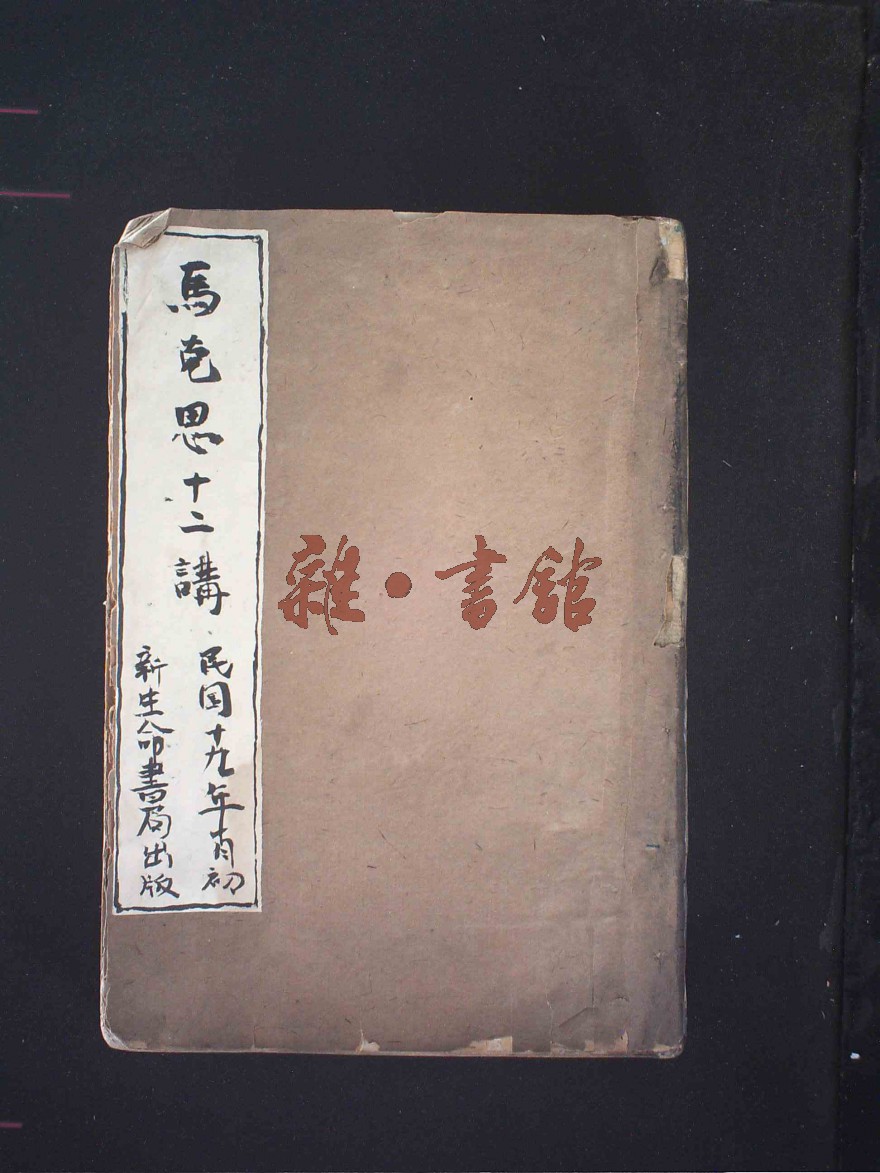 馬克思十二講
民国十九年 月初
新生命書局出版
雜·書館